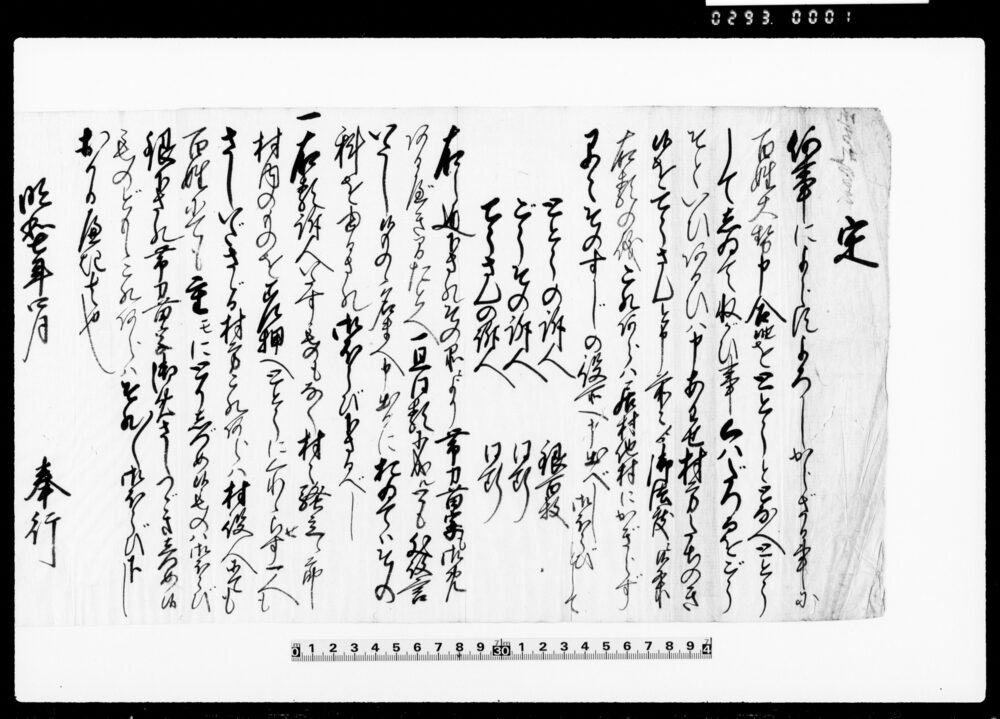 0293.0001
定
何事によらずよろしからざる事に
百姓大勢申合せをととうととなへととう
してしゐてねがひ事くハだつるをごう
そといひあるひハ申あわせ村方たちのき
候をてうさんと申前々より御法度ニ候条
右類の儀これあらハ居村他村にかぎらず
早々そのすじの役所へ申出べし御ほうびとして
ととうの訴人 銀百枚
ごうその訴人 同断
てうさんの訴人 同断
右之通下されその品により帯刀苗字御免
あるべき間たとへ一旦同類ニ成候とも発言
いたし候もの名まへ申出るにおゐてハその
科をゆるされ御ほうび下さるべし
一右類訴人いたすものもなく村々騒立候節
村内のものを差押へととうにくわらせず一人も
さしいださざる村方これあらハ村役人にても
百姓にても重モにとりしづめ候ものハ御ほうび
銀下され帯刀苗字御免さしつづきしづめ候
ものどもこれあらハそれぞれ御ほうび下し
おかるべき者也
明和七年四月
奉行
0 1 2 3 4 5 6 7 8 9 30 1 2 3 4 5 6 7 8 9 4